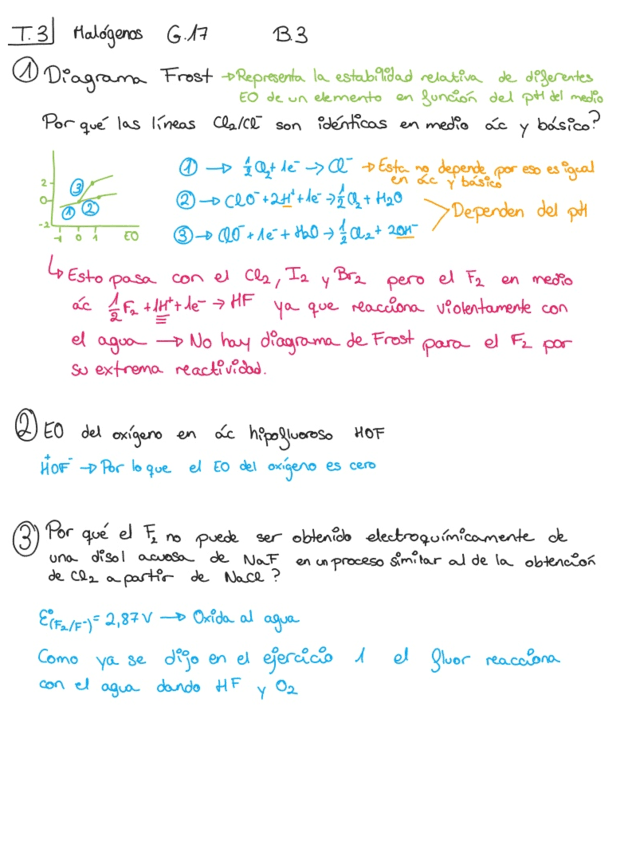 T.3 Halógenos G.17 B.3
① Diagrama Frost → Representa la estabilidad relativa de diferentes
EO de un elemento en función del pH del medio
Por qué las líneas Cl₂/Cl⁻ son idénticas en medio ác y básico?
① → ½Cl₂ + 1e⁻ → Cl⁻ → Esta no depende por eso es igual
en ác y básico
② → ClO⁻ + 2H⁺ + 1e⁻ → ½Cl₂ + H₂O
Dependen del pH
③ → ClO⁻ + 1e⁻ + H₂O → ½Cl₂ + 2OH⁻
2
0
-2
① ② ③
-1 0 1 EO
↳ Esto pasa con el Cl₂, I₂ y Br₂ pero el F₂ en medio
ác ½F₂ + 1H⁺ + 1e⁻ → HF ya que reacciona violentamente con
el agua → No hay diagrama de Frost para el F₂ por
su extrema reactividad.
② EO del oxígeno en ác hipofluoroso HOF
H⁺OF⁻ → Por lo que el EO del oxígeno es cero
③ Por qué el F₂ no puede ser obtenido electroquímicamente de
una disol acuosa de NaF en un proceso similar al de la obtención
de Cl₂ a partir de NaCl?
Ɛ°(F₂/F⁻) = 2,87V → Oxida al agua
Como ya se dijo en el ejercicio 1 el fluor reacciona
con el agua dando HF y O₂